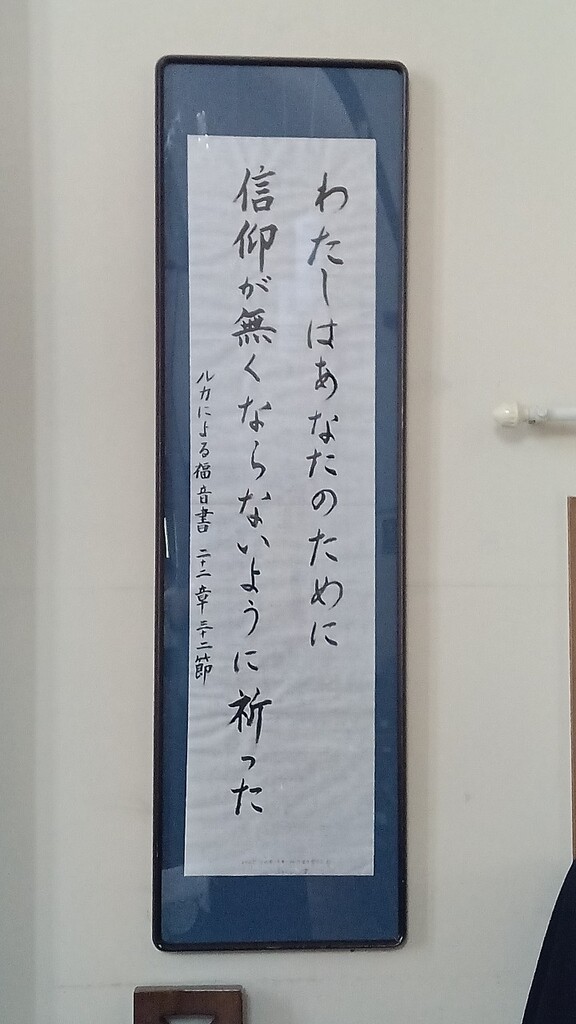 わたしはあなたのために
信仰が無くならないように祈った
ルカによる福音書 二十二章 三十二節